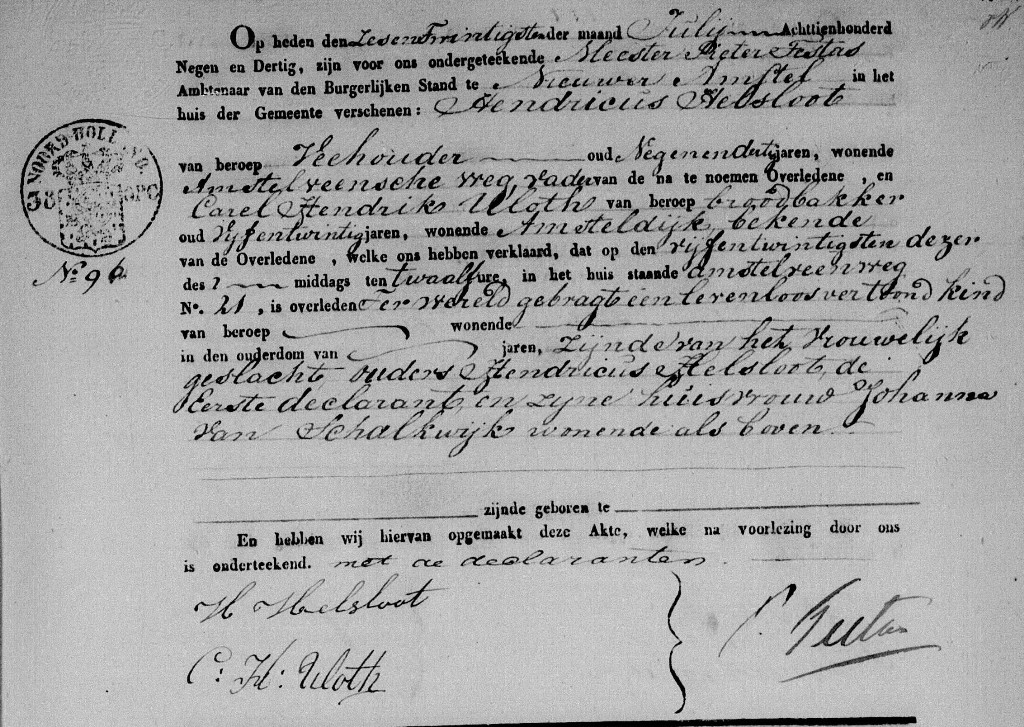 Op heden den Zesen Twintigsten der maand Julij Achttienhonderd
Negen en Dertig, zijn voor ons ondergeteekende Meester Pieter Festas
Ambtenaar van den Burgerlijken Stand te Nieuwer Amstel in het
huis der Gemeente verschenen: Hendricus Helsloot
NOORD-HOLLAND.
38
OPC
van beroep Veehouder oud Negenendertig jaren, wonende
Amstelveensche weg, vader van de na te noemen Overledene, en
Carel Hendrik Uloth van beroep broodbakker
oud Vyfentwintig jaren, wonende Amsteldijk, bekende
van de Overledene, welke ons hebben verklaard, dat op den vijfentwintigsten dezer
No. 96
des middags ten twaalf ure, in het huis staande amstelveenweg
No. 21, is overleden ter wereld gebragt een levenloos vertoond kind
van beroep wonende
in den ouderdom van jaren, zijnde van het vrouwelijk
geslacht, ouders Hendricus Helsloot, de
Eerste declarant, en zyne huisvrouw Johanna
van Schalkwijk wonende als boven
zijnde geboren te
En hebben wij hiervan opgemaakt deze Akte, welke na voorlezing door ons
is onderteekend. met de declaranten.
H Helsloot
C: H: Uloth